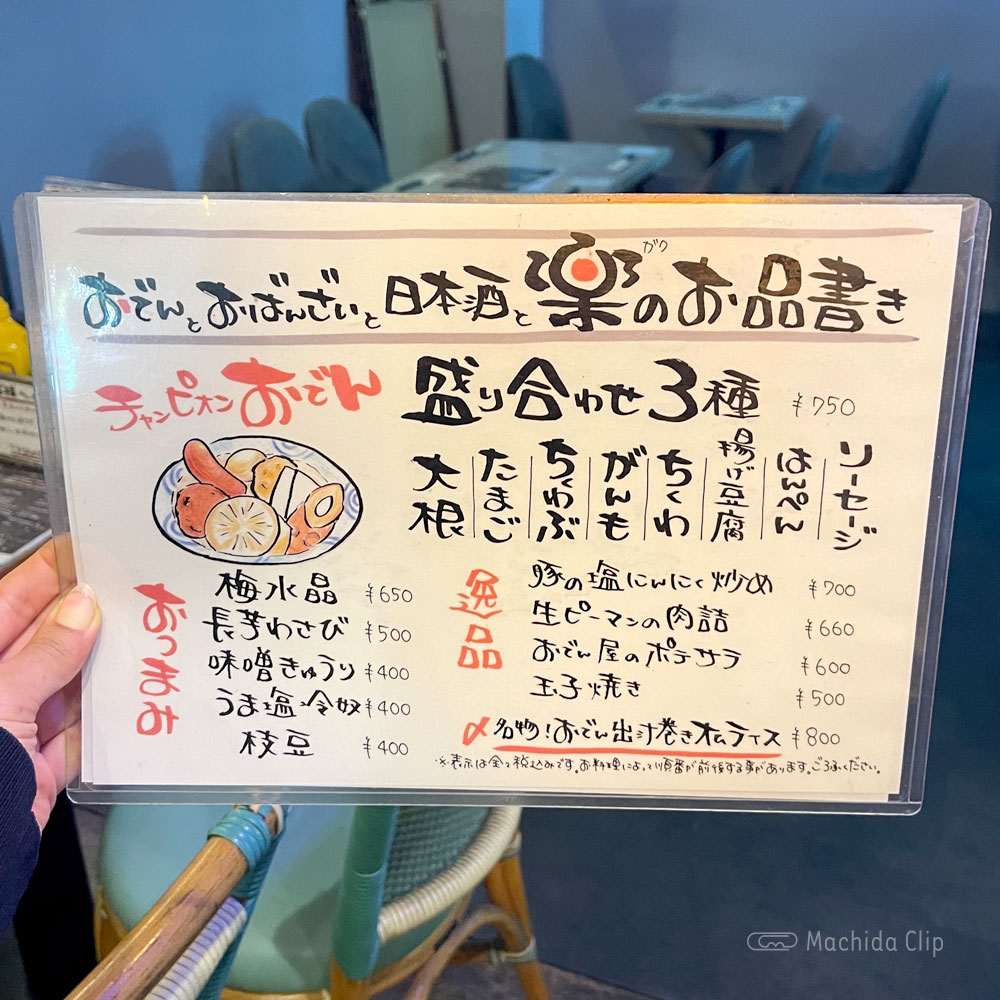 おでんとおばんざいと日本酒と楽のお品書き
ガク
チャンピオンおでん 盛り合わせ3種 ¥750
大根
たまご
ちくわぶ
がんも
ちくわ
揚げ豆腐
はんぺん
ソーセージ
おつまみ
梅水晶 ¥650
長芋わさび ¥500
味噌きゅうり ¥400
うま塩冷奴 ¥400
枝豆 ¥400
逸品
豚の塩にんにく炒め ¥700
生ピーマンの肉詰 ¥660
おでん屋のポテサラ ¥600
玉子焼き ¥500
〆 名物!おでん出汁巻きオムライス ¥800
※表示は全て税込みです。お料理によって順番が前後する事があります。ご了承ください。
Machida Clip